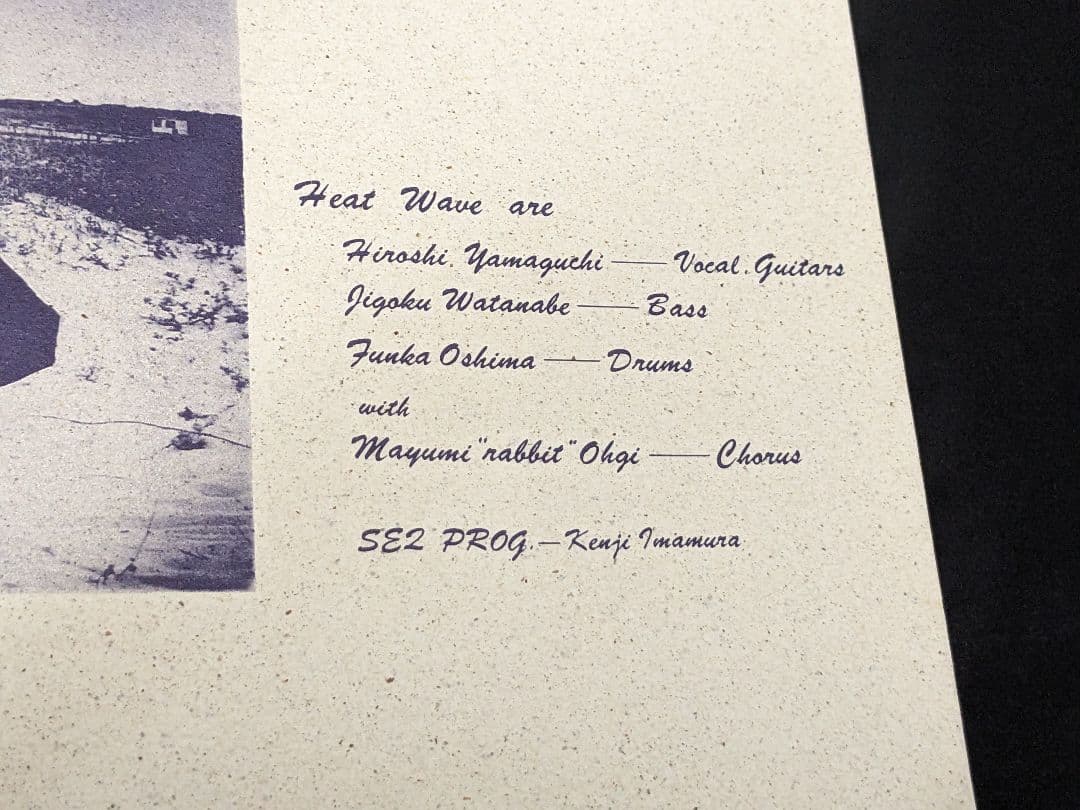 Heat Wave are
Hiroshi. Yamaguchi — Vocal. Guitars
Jigoku Watanabe — Bass
Funka Oshima — Drums
with
Mayumi "rabbit" Ohgi — Chorus
SE2 PROG. — Kenji Imamura